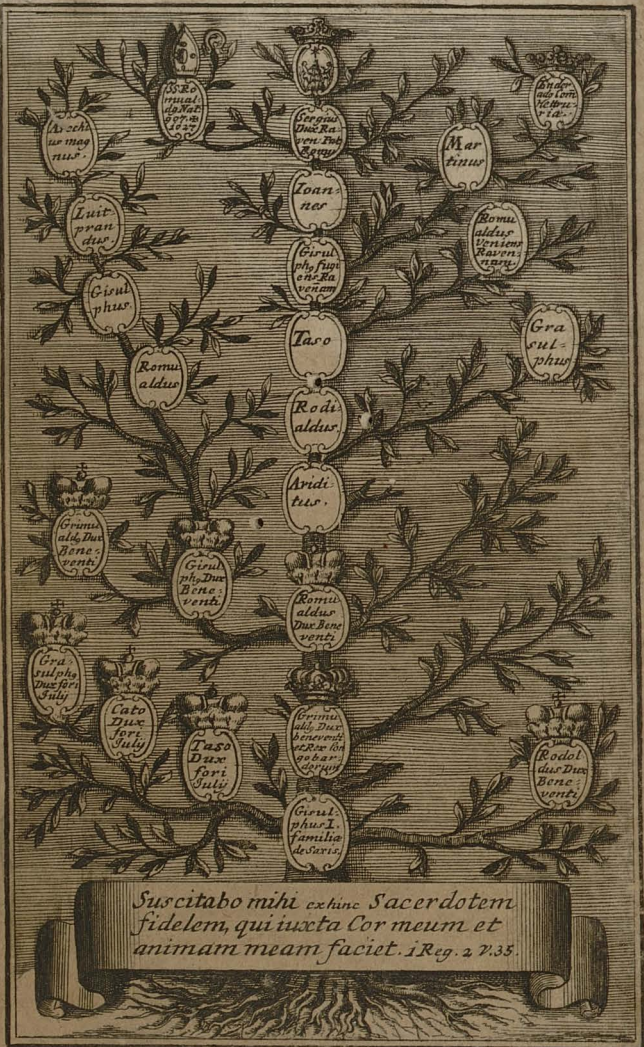 SS Ro
mual
do Nat
907. &
1027
Sergius
Dux Ra
ven Pat
Arechi
us mag
nus.
Mar
tinus
Ioan-
nes
Luit
pran
dus.
Romu
aldus
veniens
Raven-
nam.
Gisul
ph9 fugi
ens Ra
venam
Gisul
phus.
Taso
Gra
sul-
phus
Romu
aldus
Rodi-
aldus.
Aridi
tus.
Grimu
ald9 Dux
Bene-
venti
Gisul
ph9 Dux
Bene-
venti
Romu
aldus
Dux Bene
venti
Gra-
sulph9
Dux fori
July
Cato
Dux
fori
July
Taso
Dux
fori
Julij
Grimu
ald9 Dux
beneventi
et Rex lon
gobar-
dorum
Rodol
dus Dux
Bene-
venti
Gisul-
phus I.
familiæ
de Saxis.
Suscitabo mihi exhinc Sacerdotem
fidelem, qui iuxta Cor meum et
animam meam faciet. 1 Reg. 2 V.35.